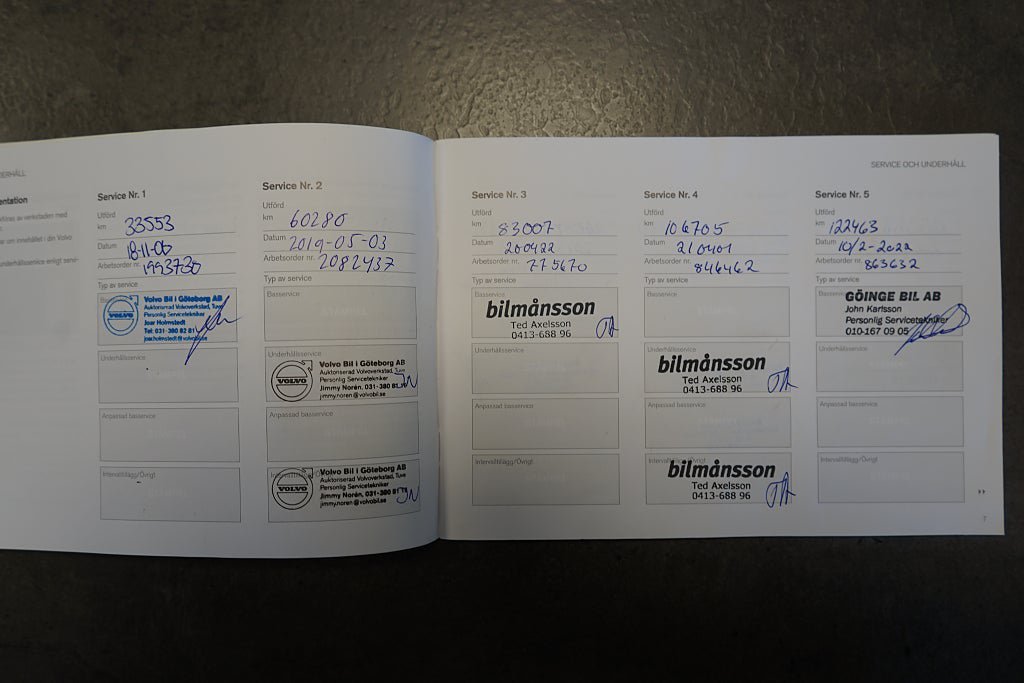 DERHÅLL
entation
Service Nr. 1
Utförd
km 33553
Datum 18-11-06
Arbetsorder nr. 1993730
Typ av service
VOLVO
Volvo Bil i Göteborg AB
Auktoriserad Volvoverkstad, Tuve
Personlig Servicetekniker
Joar Holmstedt
Tel: 031-380 82 81
joar.holmstedt@volvobil.se
Underhållsservice
Anpassad basservice
Intervalltillägg/Övrigt
Service Nr. 2
Utförd
km 60280
Datum 2019-05-03
Arbetsorder nr. 2082437
Typ av service
Basservice
Underhållsservice
VOLVO
Volvo Bil i Göteborg AB
Auktoriserad Volvoverkstad, Tuve
Personlig Servicetekniker
Jimmy Norén, 031-380 81
jimmy.noren@volvobil.se
Anpassad basservice
Intervalltillägg/Övrigt
VOLVO
Volvo Bil i Göteborg AB
Auktoriserad Volvoverkstad, Tuve
Personlig Servicetekniker
Jimmy Norén, 031-380 81
jimmy.noren@volvobil.se
SERVICE OCH UNDERHÅLL
Service Nr. 3
Utförd
km 83007
Datum 200422
Arbetsorder nr. 775670
Typ av service
Basservice
bilmånsson
Ted Axelsson
0413-688 96
TA
Underhållsservice
Anpassad basservice
Intervalltillägg/Övrigt
Service Nr. 4
Utförd
km 106705
Datum 210401
Arbetsorder nr. 846462
Typ av service
Basservice
Underhållsservice
bilmånsson
Ted Axelsson
0413-688 96
TA
Anpassad basservice
Intervalltillägg/Övrigt
bilmånsson
Ted Axelsson
0413-688 96
TA
Service Nr. 5
Utförd
km 122463
Datum 10/2-2022
Arbetsorder nr. 863632
Typ av service
Basservice
GÖINGE BIL AB
John Karlsson
Personlig Servicetekniker
010-167 09 05
Underhållsservice
Anpassad basservice
Intervalltillägg/Övrigt
7